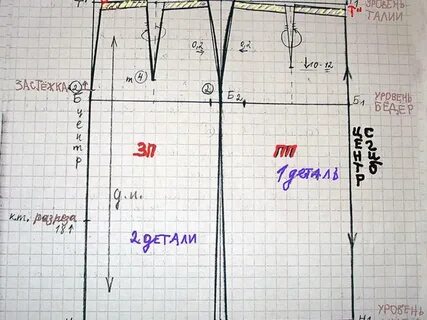 УРОВЕНЬ
ТАЛИИ
Т"
0,2
2
т④
↓10-12
ЗАСТЁЖКА ②↑
②
Б
Б₂
Б₁
УРОВЕНЬ
БЕДЕР
ЦЕНТР
ЦЕНТР
СГИБ
ЗП
ПП
1 ДЕТАЛЬ
Д.И.
к.т. разреза
18↑
2 ДЕТАЛИ
УРОВЕНЬ